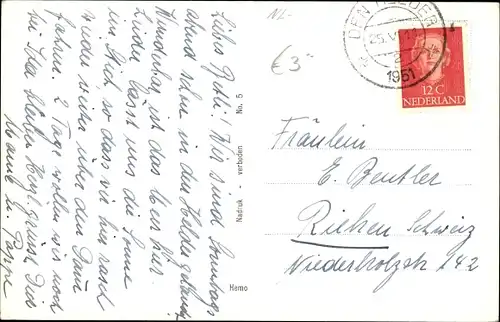 NL-
€3-
DEN HELDER
25.V
1951
12 C
NEDERLAND
Liebe Betli! Wir sind Sonntags
abend schon in den Helder gelandet.
Wunderbar ist das Meer hier.
Leider lässt uns die Sonne
im Stich so dass wir hier rasch
wieder weiter über den Damm
fahren. 2 Tage wollen wir noch
bleiben. Herzl. grüsst Dich
Mama u. Pappe
Nadruk - verboden No. 5
Hemo
Fräulein
E. Beutler
Riehen Schweiz
Niederholzstr. 142